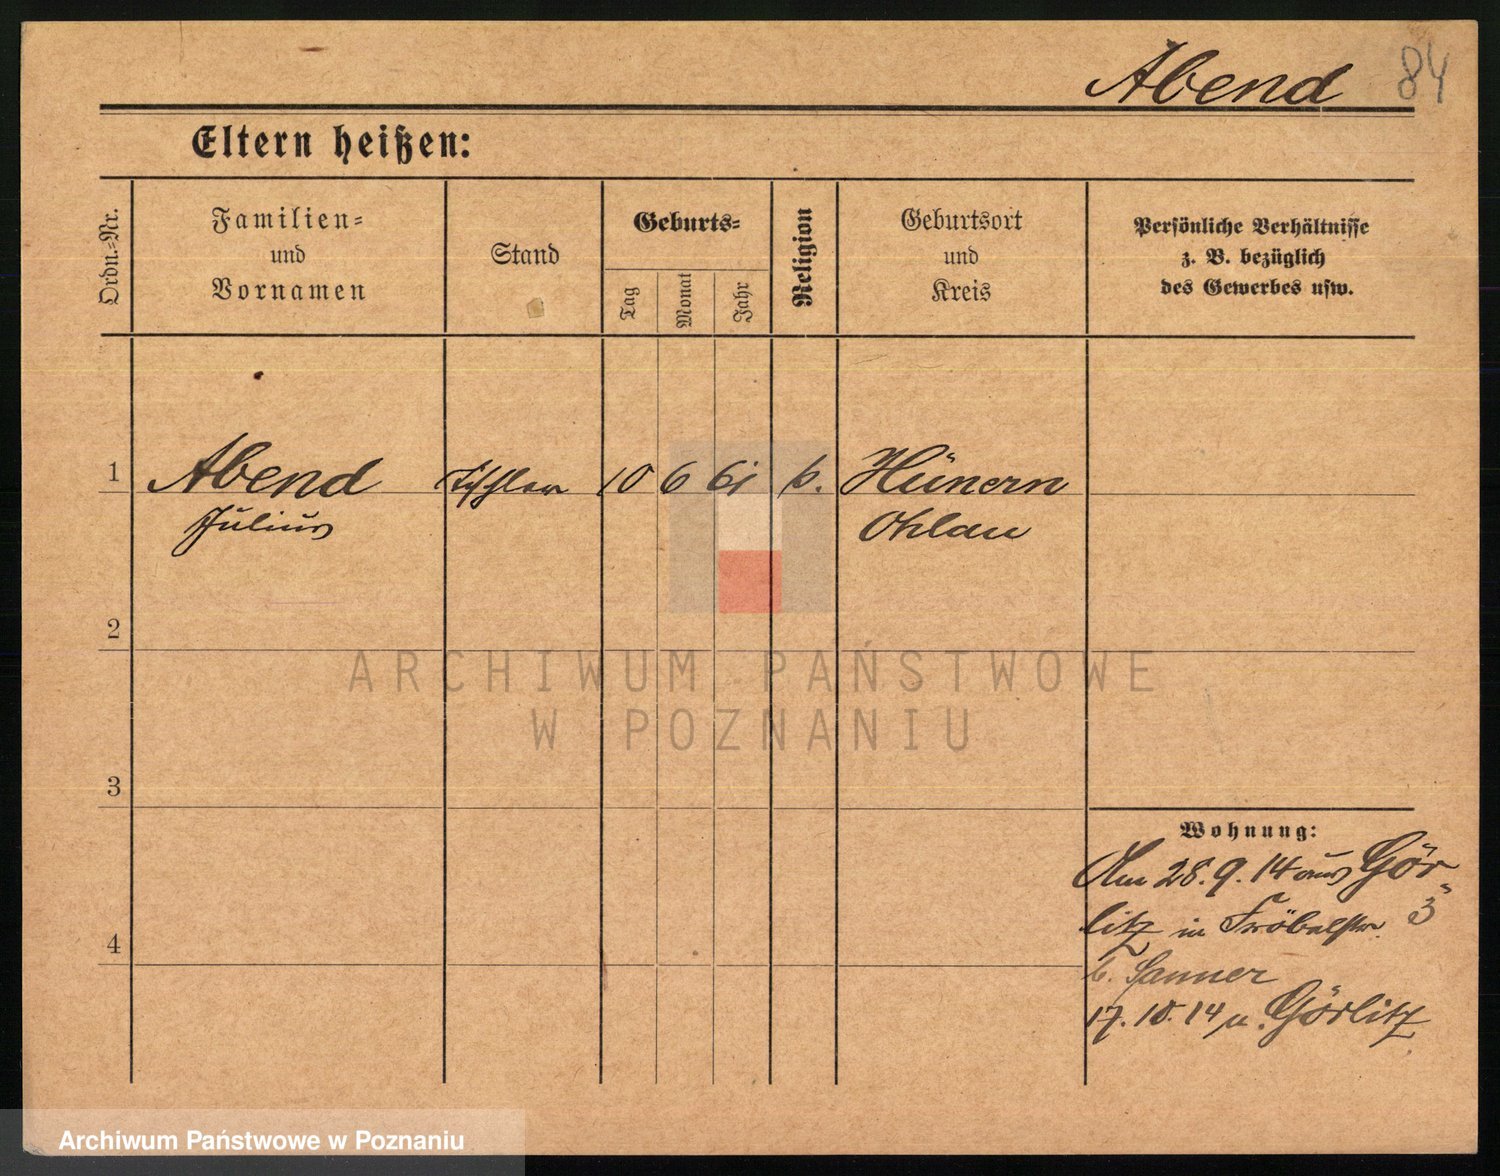 Abend 84
Eltern heißen:
Ordn.-Nr.
Familien- und Vornamen
Stand
Geburts-
Tag
Monat
Jahr
Religion
Geburtsort und Kreis
Persönliche Verhältnisse
z. B. bezüglich
des Gewerbes usw.
1 Abend Tischler 10 6 61 k. Hünern
Julius Ohlau
2
3
4
Wohnung:
Am 28. 9. 14 aus Gör-
litz in Fröbelstr. 3
b. Sanner
17. 10. 14 n. Görlitz
ARCHIWUM PAŃSTWOWE
W POZNANIU
Archiwum Państwowe w Poznaniu